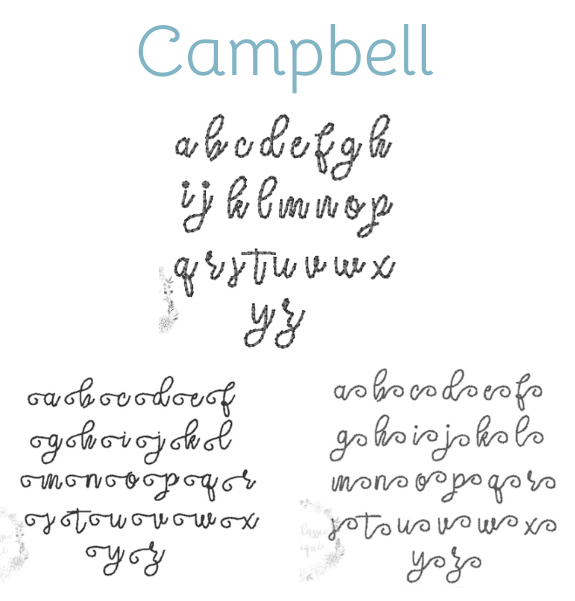 Campbell
abcdefgh
ijklmnop
qrstuvwx
yz
abcdef
ghijkl
mnopqr
stuvwx
yz
abcdef
ghijkl
mnopqr
stuvwx
yz